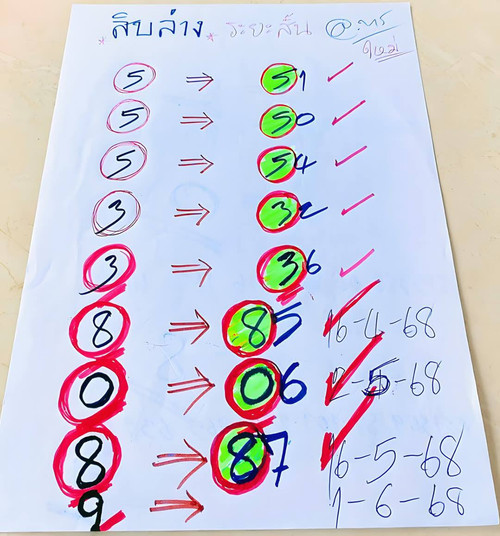 * สิบล่าง * ระยะสั้น
ใหม่
5 ⇒ 51 ✓
5 ⇒ 50 ✓
5 ⇒ 54 ✓
3 ⇒ 32 ✓
3 ⇒ 36 ✓
8 ⇒ 85 ✓ 16-4-68
0 ⇒ 06 ✓ 2-5-68
8 ⇒ 87 ✓ 16-5-68
9 ⇒ 1-6-68